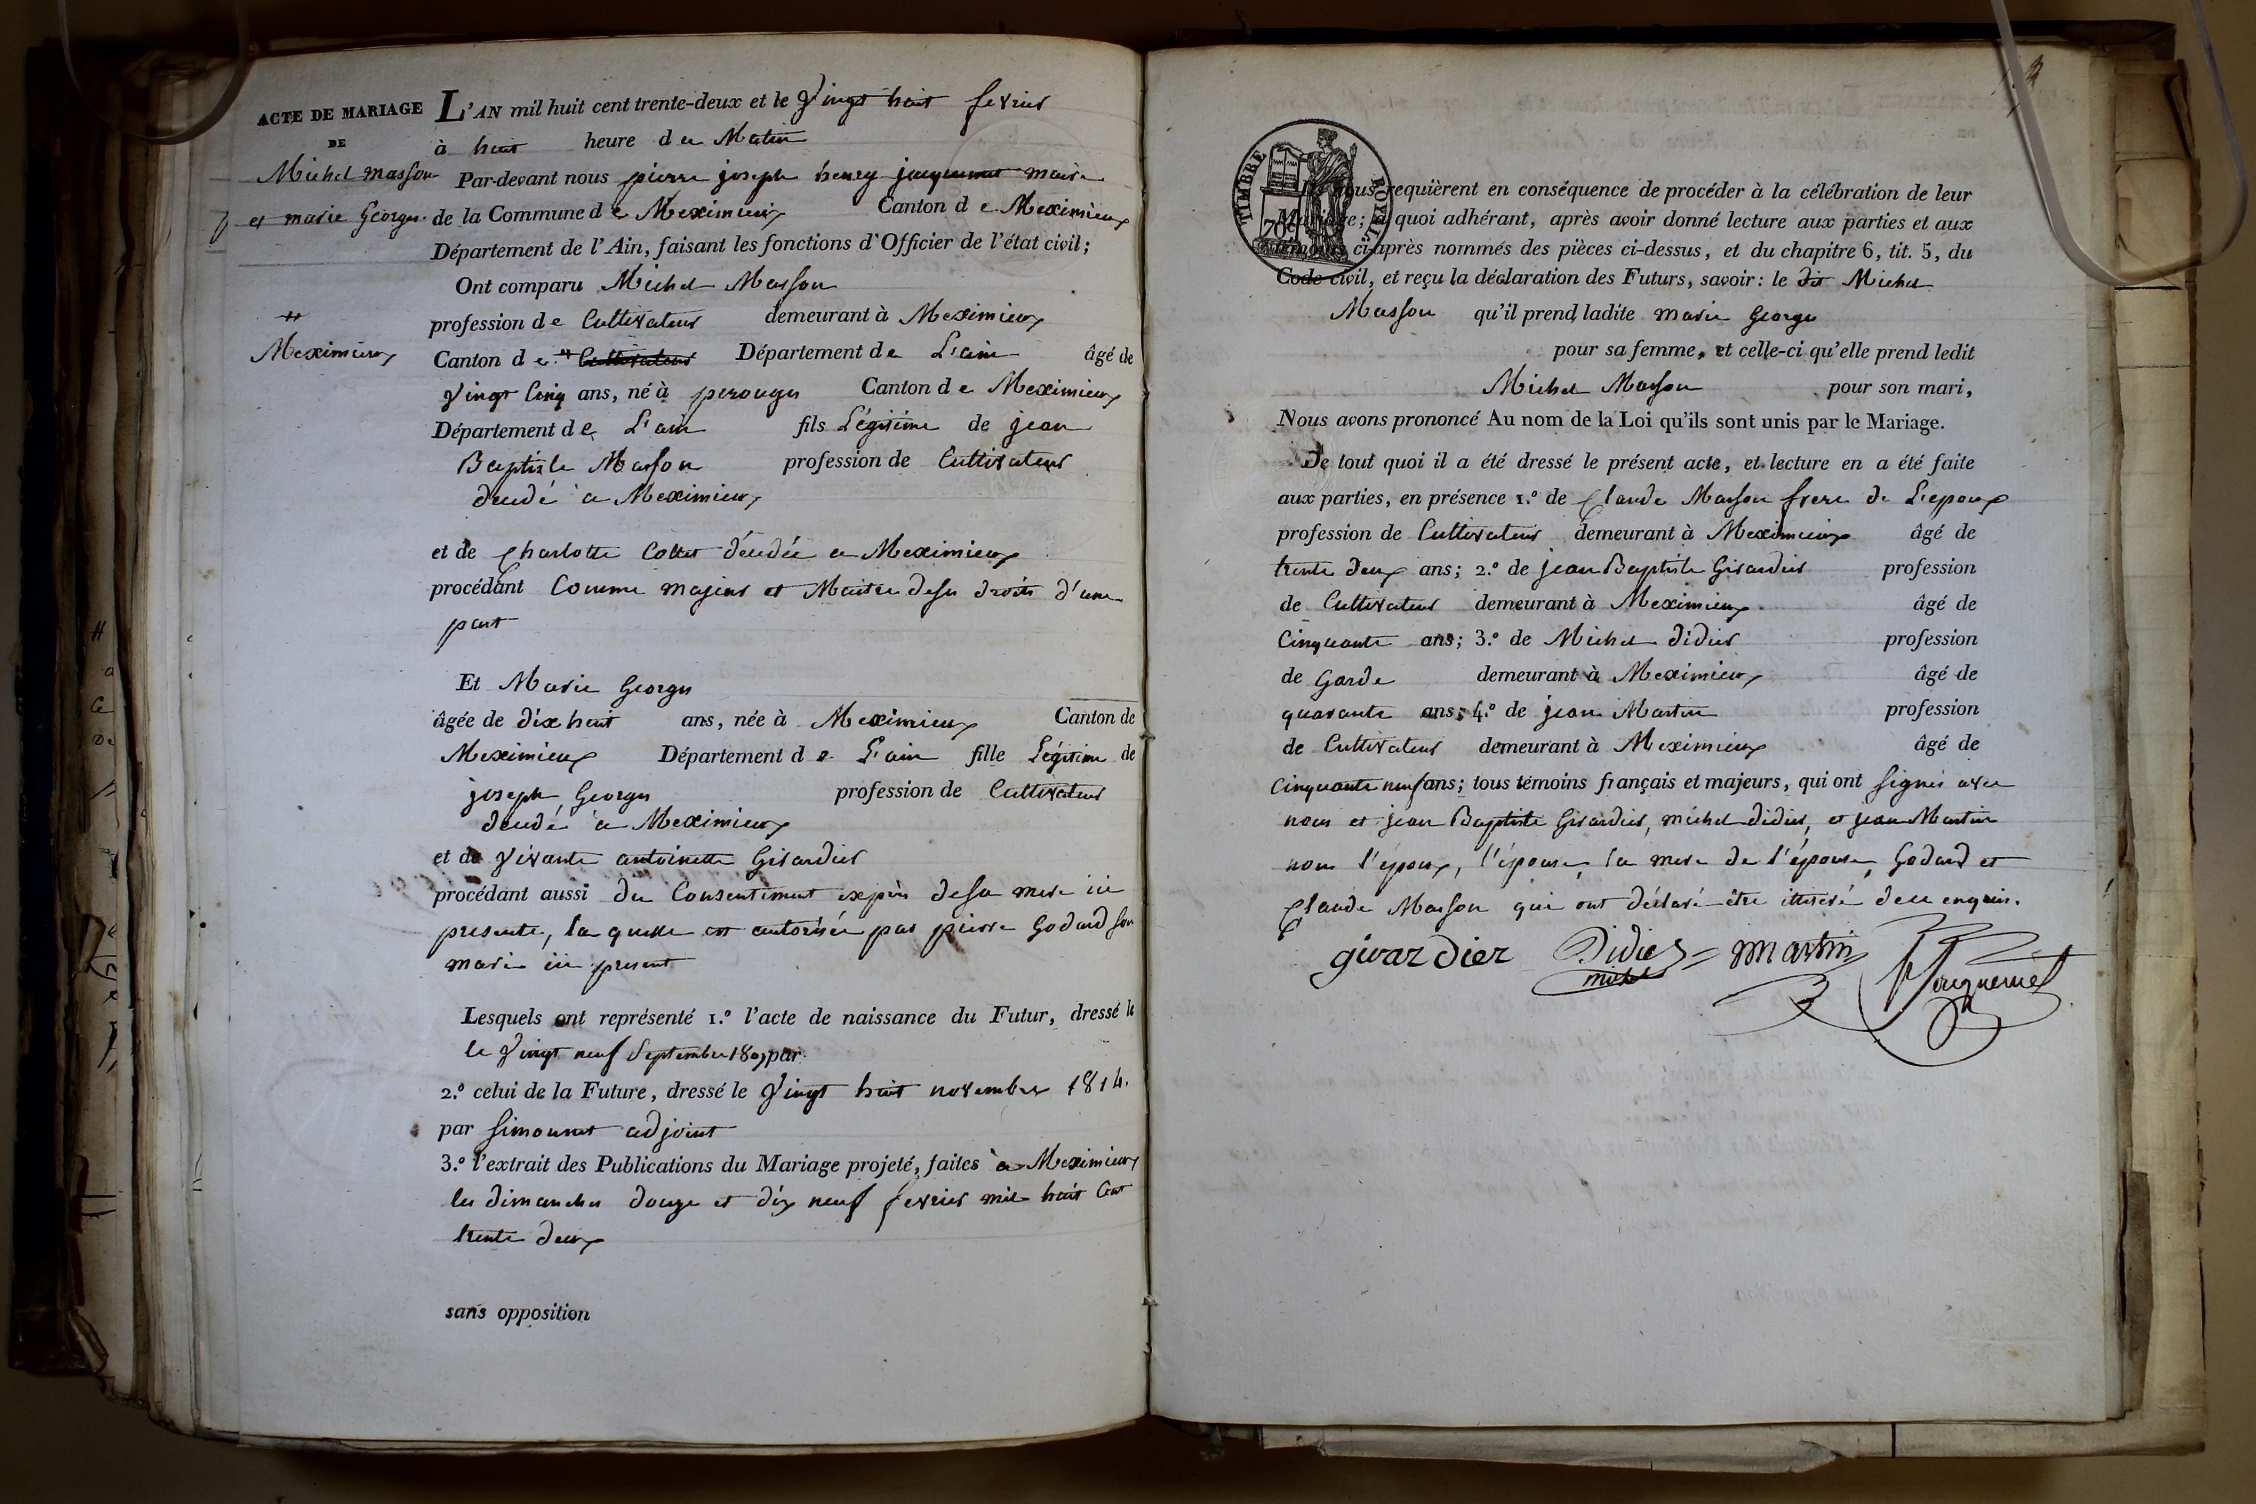 ACTE DE MARIAGE
DE
Michel Masson
et marie Georges
#
Meximieux
L'AN mil huit cent trente-deux et le Vingt huit fevrier
à huit heure du Matin
Par-devant nous pierre joseph henry jacquemet maire
de la Commune de Meximieux Canton de Meximieux
Département de l'Ain, faisant les fonctions d'Officier de l'état civil;
Ont comparu Michel Masson
profession de Cultivateur demeurant à Meximieux
Canton de # Cultivateur Département de L'ain âgé de
Vingt Cinq ans, né à perouges Canton de Meximieux
Département de L'ain fils Légitime de jean
Baptiste Masson profession de Cultivateur
décédé à Meximieux
et de Charlotte Collet décédée a Meximieux
procédant Comme majeur et Maitre de ses droits d'une
part
Et Marie Georges
âgée de dix huit ans, née à Meximieux Canton de
Meximieux Département de L'ain fille Légitime de
joseph Georges profession de Cultivateur
décédé à Meximieux
et de Vivante antoinette Girardier
procédant aussi du Consentement exprès de sa mere ici
presente, la quelle est autorisée par pierre Godard son
mari ici present
Lesquels ont représenté 1.º l'acte de naissance du Futur, dressé le
le Vingt neuf Septembre 1807 par
2.º celui de la Future, dressé le Vingt huit novembre 1814.
par Simonnet adjoint
3.º l'extrait des Publications du Mariage projeté, faites à Meximieux
les dimanches douze et dix neuf fevrier mil huit Cent
trente deux
sans opposition
TIMBRE ROYAL
70
nous requièrent en conséquence de procéder à la célébration de leur
Mariage; à quoi adhérant, après avoir donné lecture aux parties et aux
témoins ci-après nommés des pièces ci-dessus, et du chapitre 6, tit. 5, du
Code civil, et reçu la déclaration des Futurs, savoir: le dit Michel
Masson qu'il prend ladite marie Georges
pour sa femme, et celle-ci qu'elle prend ledit
Michel Masson pour son mari,
Nous avons prononcé Au nom de la Loi qu'ils sont unis par le Mariage.
De tout quoi il a été dressé le présent acte, et lecture en a été faite
aux parties, en présence 1.º de Claude Masson frere de L'epoux
profession de Cultivateur demeurant à Meximieux âgé de
trente deux ans; 2.º de jean Baptiste Girardier profession
de Cultivateur demeurant à Meximieux âgé de
Cinquante ans; 3.º de Michel didier profession
de Garde demeurant à Meximieux âgé de
quarante ans; 4.º de jean Martin profession
de Cultivateur demeurant à Meximieux âgé de
Cinquante neuf ans; tous témoins français et majeurs, qui ont signés avec
nous et jean Baptiste Girardier, michel didier, et jean Martin
non l'époux, l'épouse, la mere de l'épouse, Godard et
Claude Masson qui ont déclaré être illitéré de ce enquis.
girardier Didier martin Jacquemet
michel